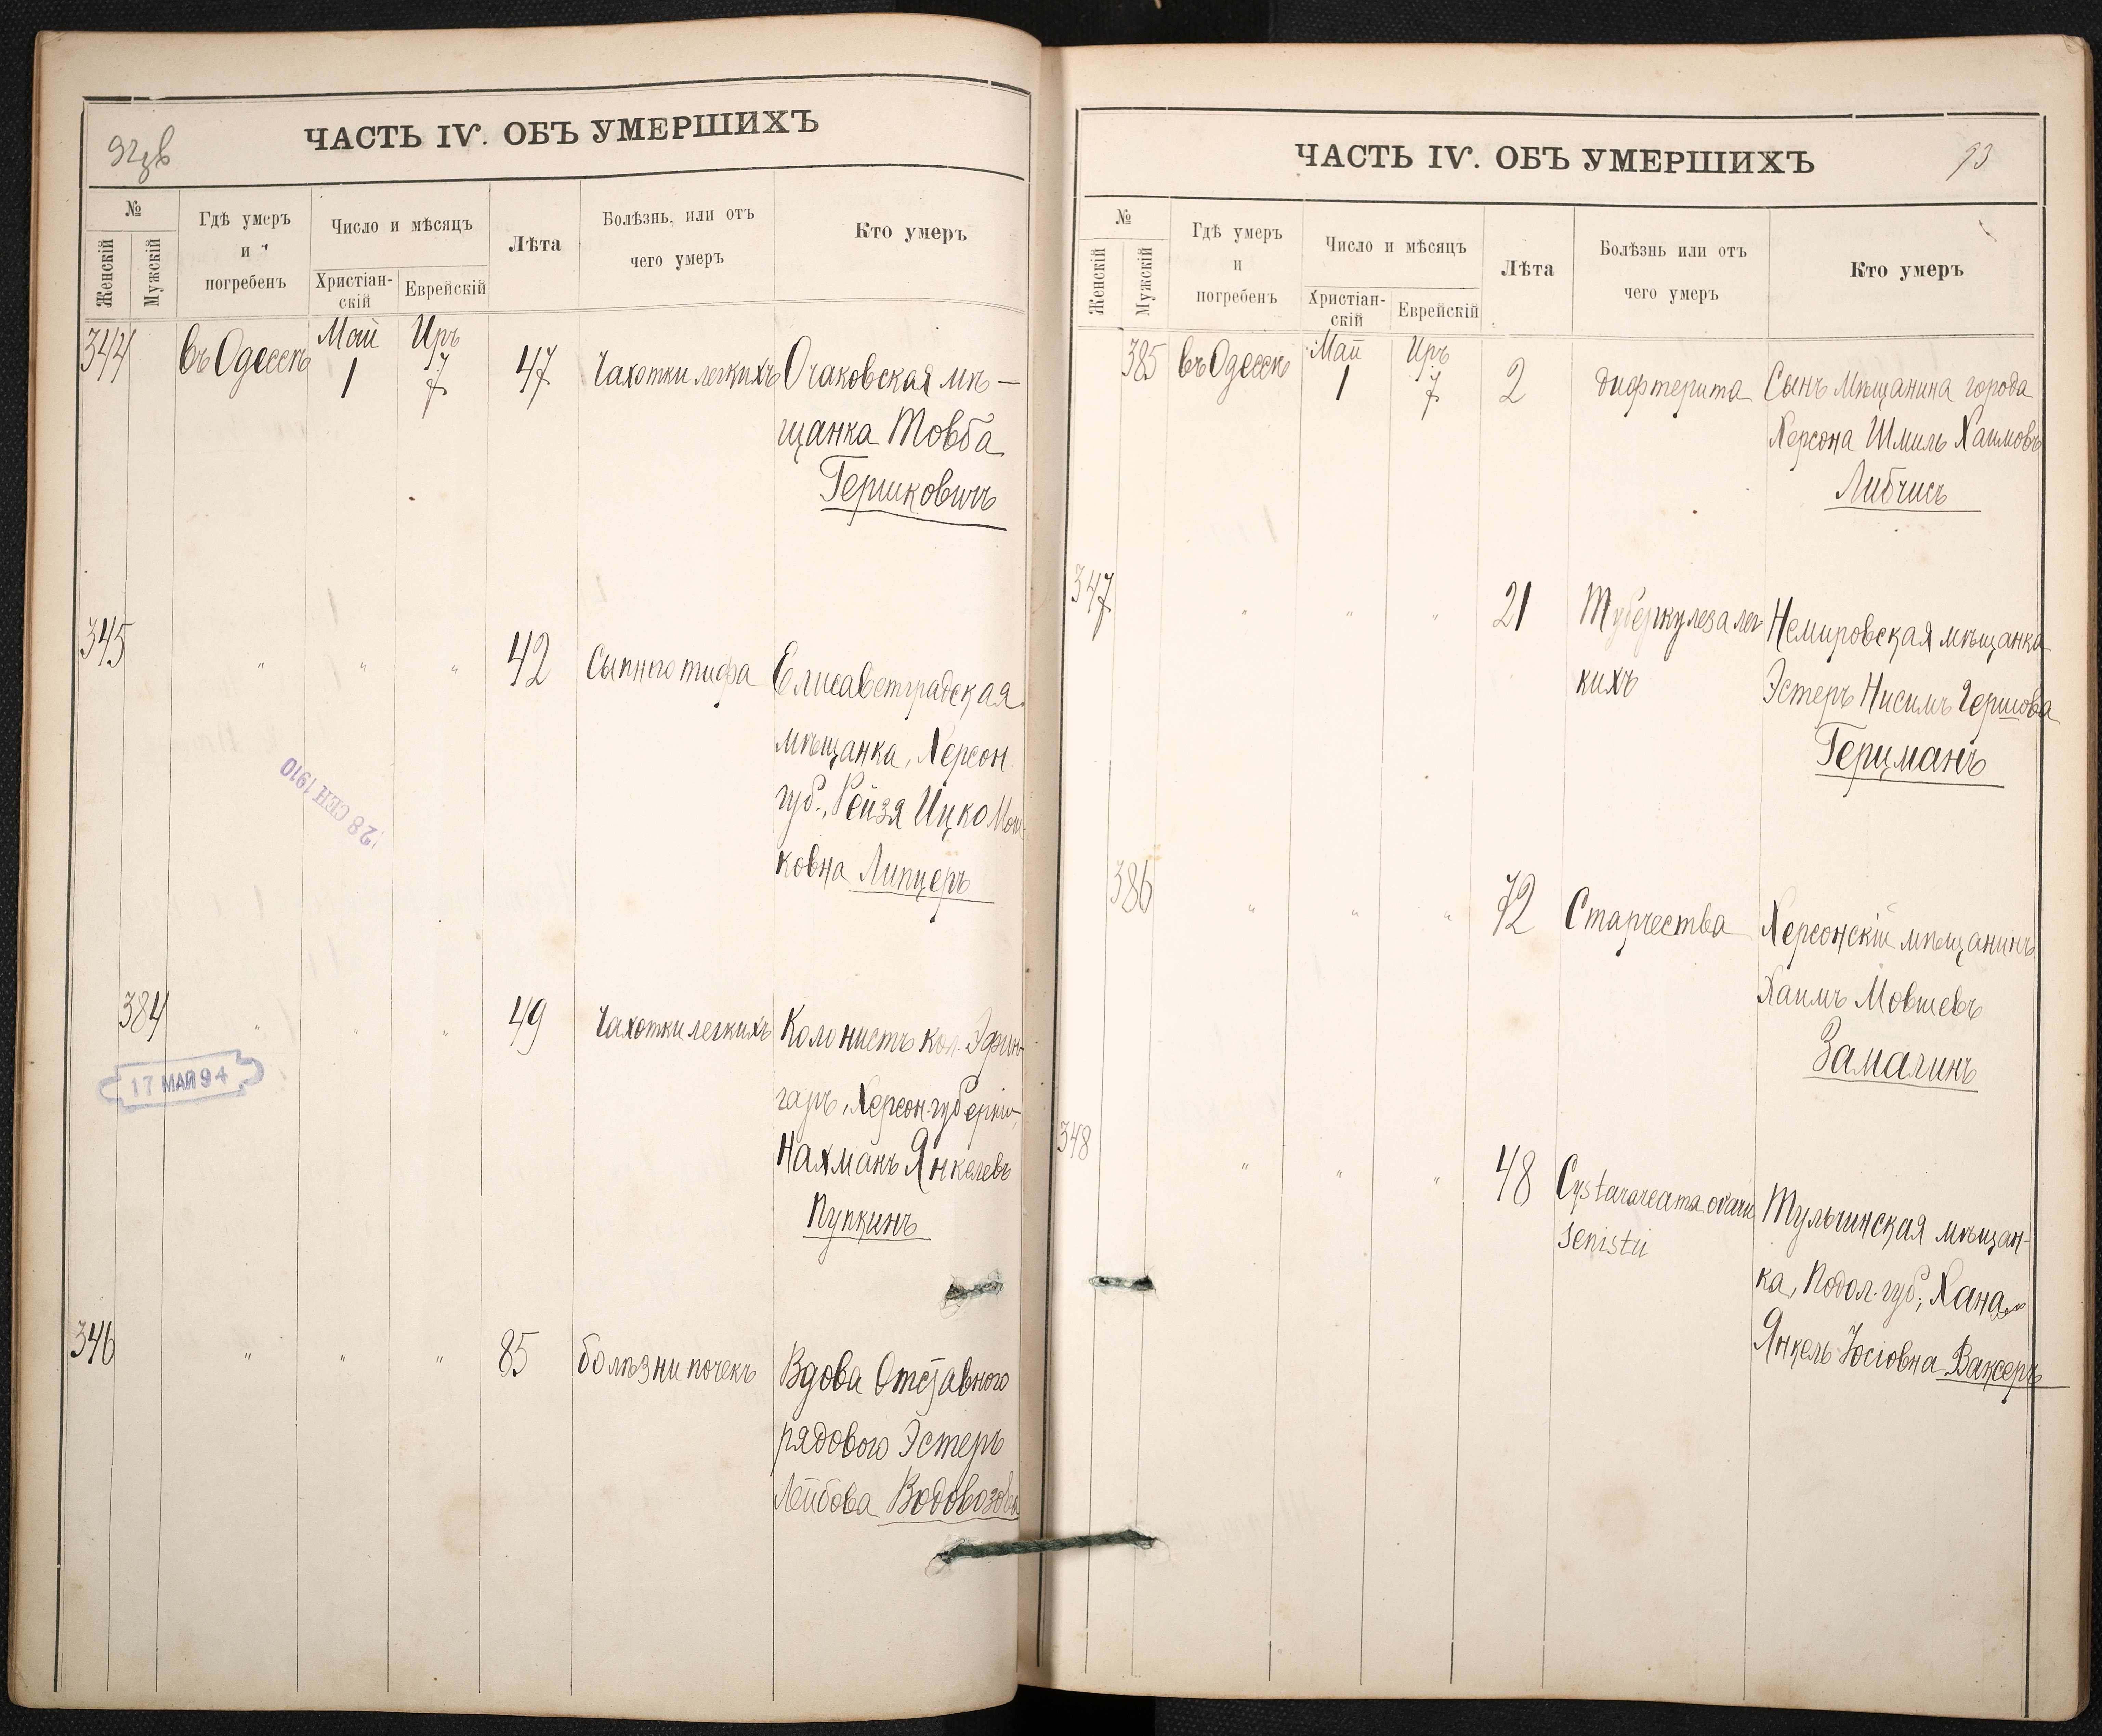 ЧАСТЬ IV. ОБЪ УМЕРШИХЪ
№
Женскій
Мужскій
Гдѣ умеръ
и
погребенъ
Число и мѣсяцъ
Христіан-
скій
Еврейскій
Лѣта
Болѣзнь, или отъ
чего умеръ
Кто умеръ
344 въ Одессѣ Май 1 Иръ 7 47 Чахотки легкихъ Очаковская мѣ-
щанка Товба
Гершковичъ
345 " " " 42 Сыпного тифа Елисаветградская
мѣщанка, Херсон.
губ., Рейзя Ицко Мош-
ковна Липцеръ
28 СЕН 1910
384 " " " 49 Чахотки легкихъ Колонистъ кол. Эфин-
гаръ, Херсон. губерніи,
Нахманъ Янкелевъ
Пупкинъ
17 МАЯ 94
346 " " " 85 болѣзни почекъ Вдова Отставного
рядового Эстеръ
Лейбова Водовозова
ЧАСТЬ IV. ОБЪ УМЕРШИХЪ
93
№
Женскій
Мужскій
Гдѣ умеръ
и
погребенъ
Число и мѣсяцъ
Христіан-
скій
Еврейскій
Лѣта
Болѣзнь или отъ
чего умеръ
Кто умеръ
385 въ Одессѣ Май 1 Иръ 7 2 дифтерита Сынъ Мѣщанина города
Херсона Шмиль Хаимовъ
Либчисъ
347 " " " 21 Туберкулеза лег- Немировская мѣщанка
кихъ Эстеръ Нисимъ Гершова
Герцманъ
386 " " " 72 Старчества Херсонскій мѣщанинъ
Хаимъ Мовшевъ
Замагинъ
348 " " " 48 Тульчинская мѣщан-
ка, Подол. губ., Хана
Янкель Іосіовна Ваксеръ